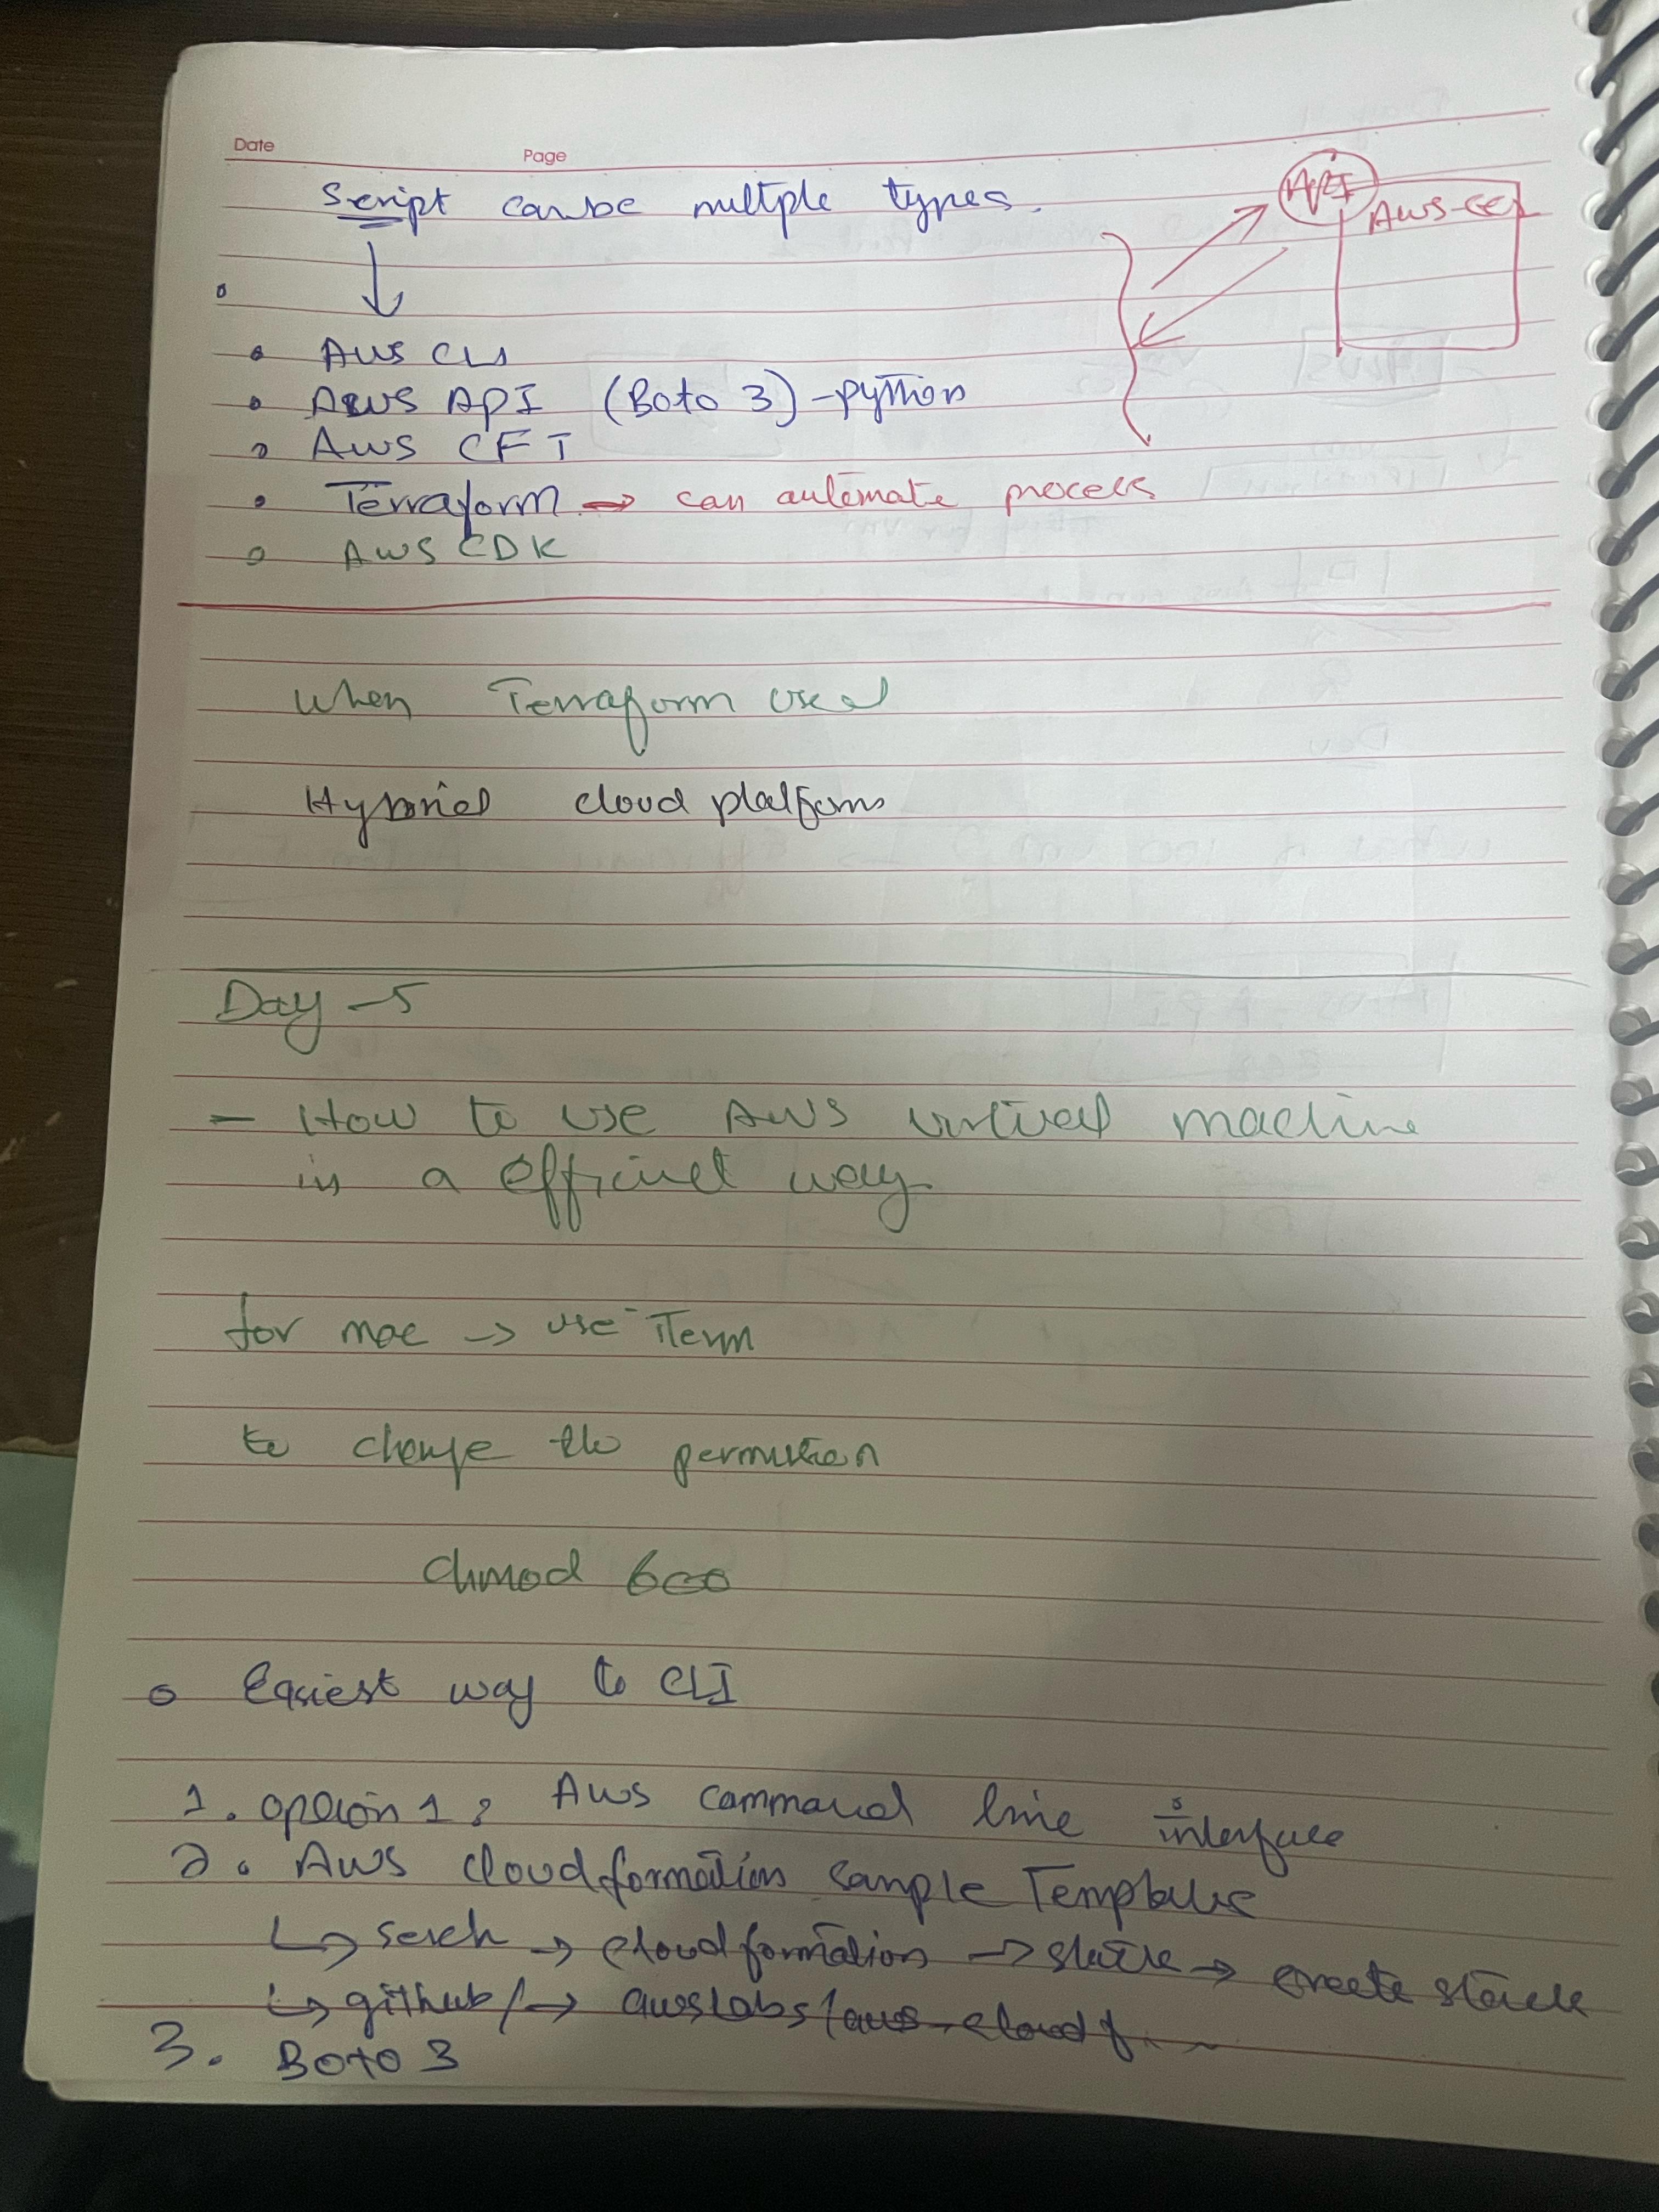 Date
Page
Script can be multple types.
API
AWS-EC2
• AWS CLI
• AWS API (Boto 3) - python
• AWS CFT
• Terraform → can automate process
• AWS CDK
When Terraform used
Hybrid cloud platform
Day - 5
- How to use AWS virtual machine
in a efficient way
for mac → use iTerm
to change the permission
chmod 600
o Easiest way to CLI
1. option 1: AWS command line interface
2. AWS cloudformation sample Template
↳ serch → cloudformation → stack → create stack
↳ github/→ awslabs/aws-cloudf
3. Boto 3